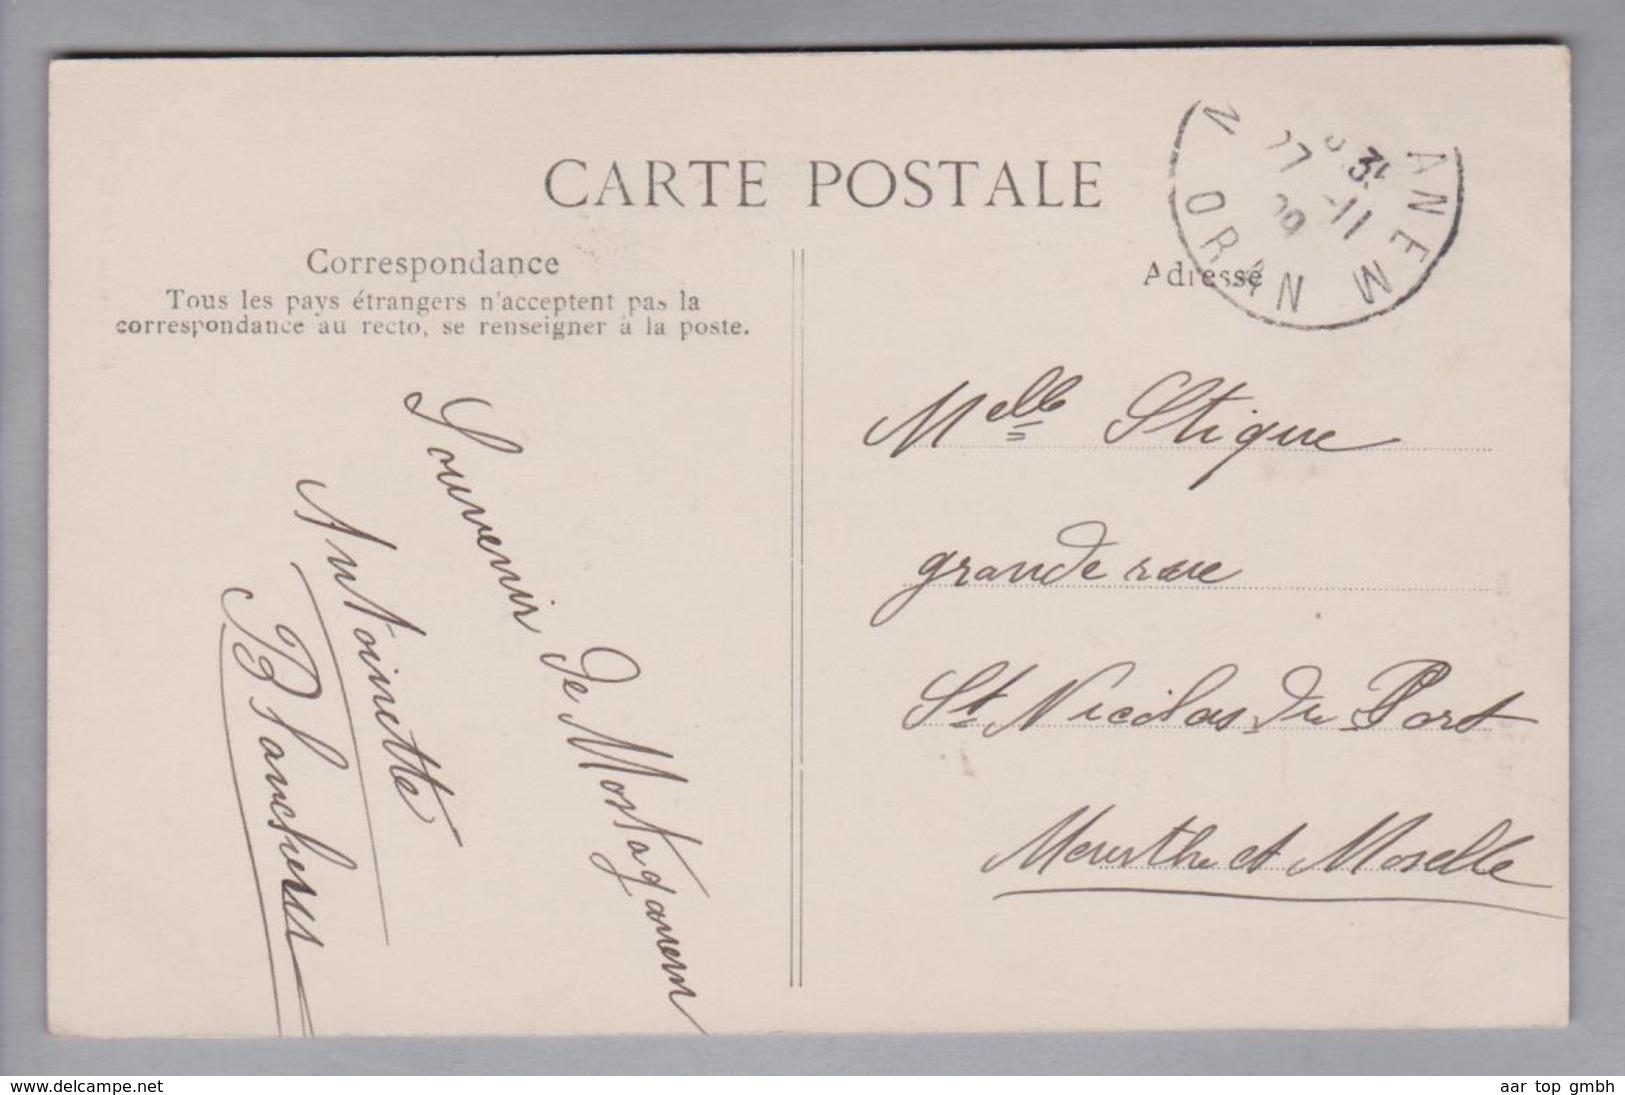 CARTE POSTALE
Correspondance
Tous les pays étrangers n'acceptent pas la
correspondance au recto, se renseigner à la poste.
Adresse
ANEM
ORAN
11
09
Souvenir
de Mostaganem
Antoinette
Melle Stique
grande rue
St Nicolas du Port
Meurthe et Moselle
www.delcampe.net
aar top gmbh